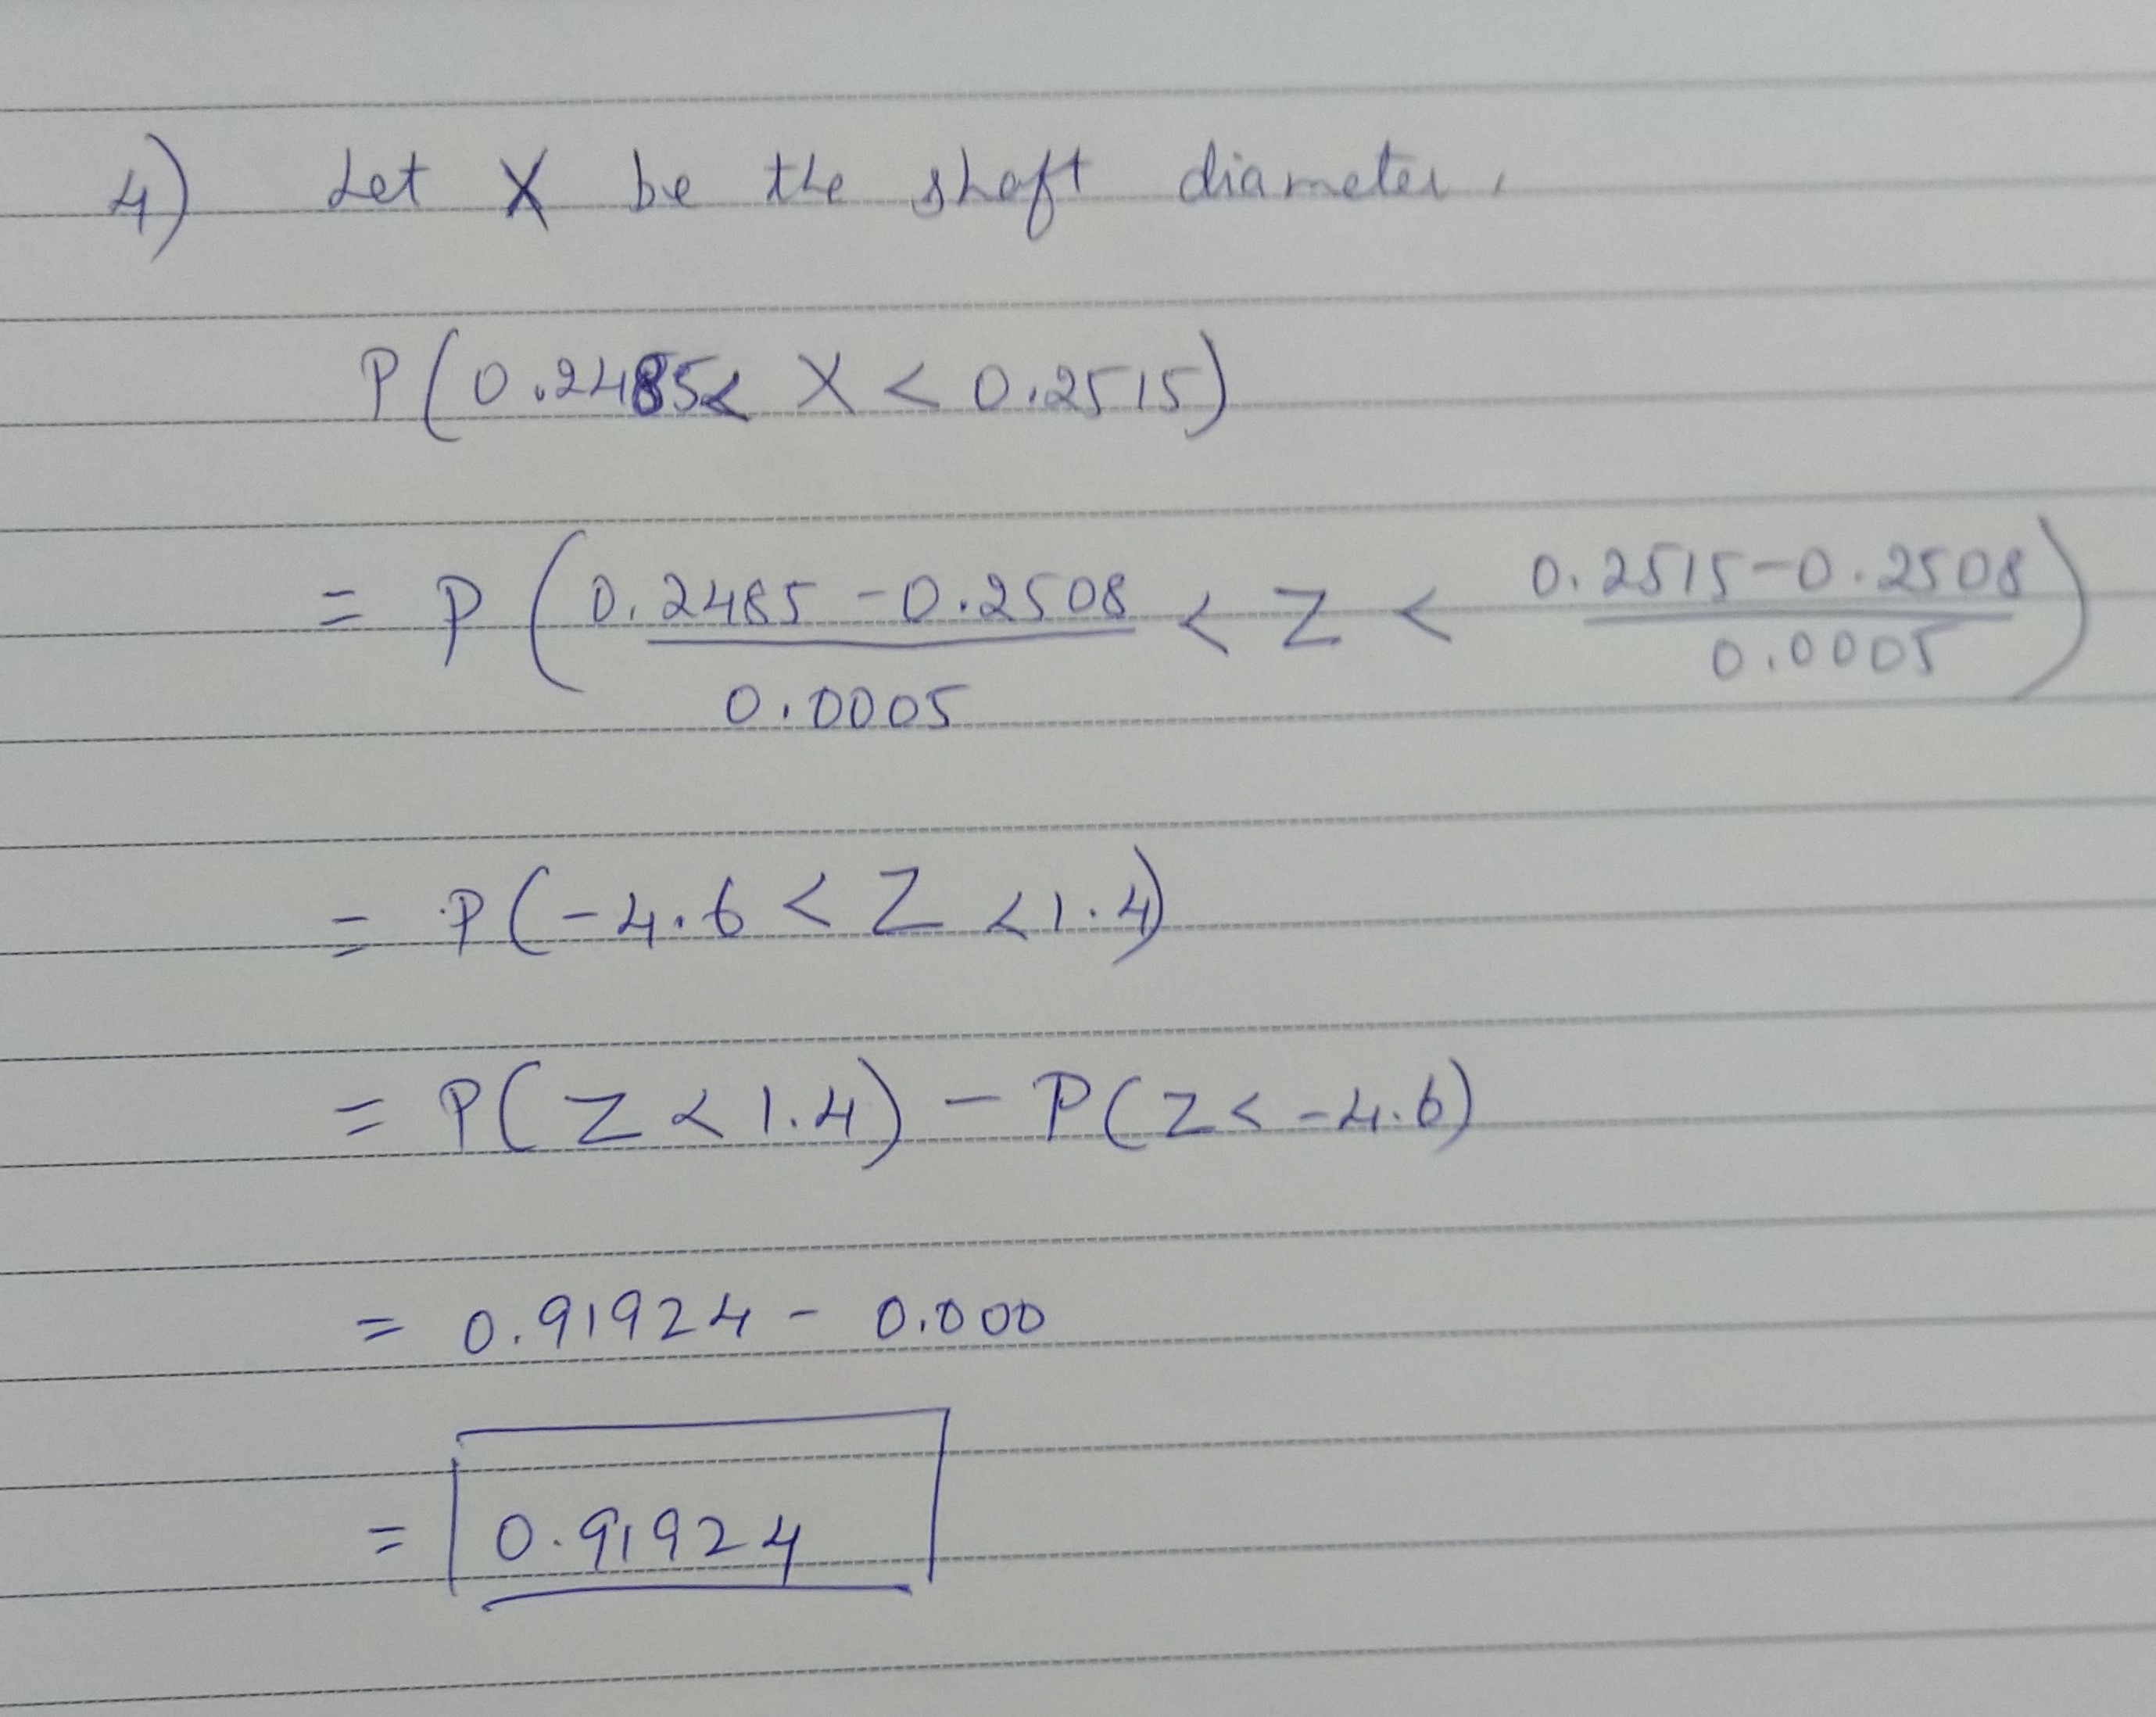 4) Let X be the shaft diameter.
P(0.2485 < X < 0.2515)
= P(0.2485 - 0.2508 / 0.0005 < Z < 0.2515 - 0.2508 / 0.0005)
= P(-4.6 < Z < 1.4)
= P(Z < 1.4) - P(Z < -4.6)
= 0.91924 - 0.000
= 0.91924